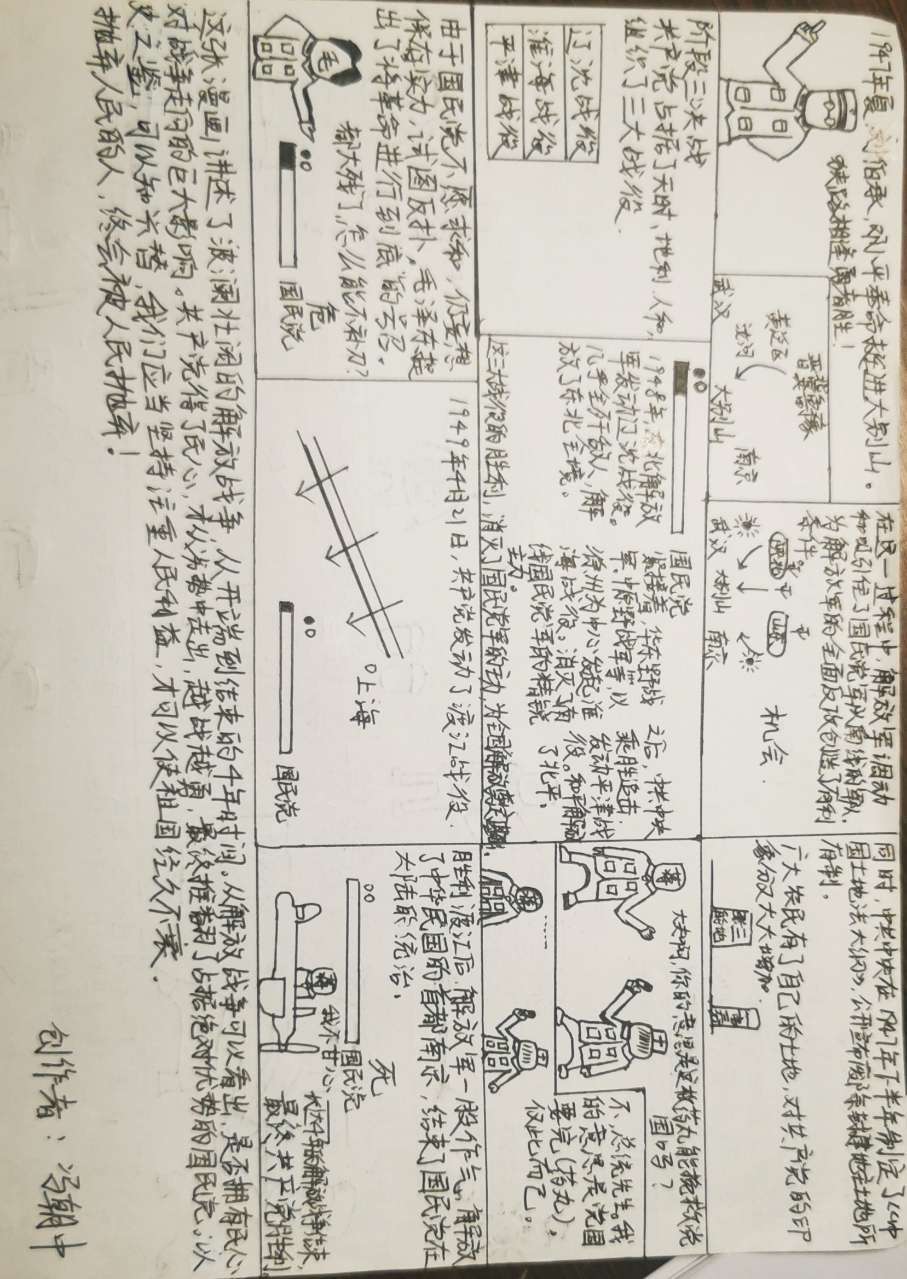 1947年夏，刘伯承，邓小平奉命挺进大别山。
狭路相逢勇者胜！
晋冀鲁豫
黄泛区
沙河
武汉
大别山
南京
在这一过程中，解放军调动
和吸引住了国民党军队南线的部队，
为解放军的全面反攻创造了有利
条件
武汉
大别山
南京
机会
同时，中共中央在1947年下半年制定了《中
国土地法大纲》，公开宣布废除封建地主土地所
有制。
广大农民有了自己的土地，对共产党的印
象分又大大增加
张三
的地
阶段三：决战
共产党占据了天时，地利，人和，
组织了三大战役
辽沈战役
淮海战役
平津战役
国民党
1948年，东北解放
军发动辽沈战役。
几乎全歼敌人，解
放了东北全境。
紧接着，华东野战
军，中原野战军等，以
徐州为中心发起淮
海战役。消灭了南
线国民党军的精锐
主力。
之后，中共中央
乘胜追击
发动平津战
役。和平解放
了北平。
这三大战役的胜利，消灭了国民党军的主力，为全国解放奠定基础。
大夫啊，你的意思是这核药丸能挽救党
国吗？
蒋
不，总统先生。我
的意思是党国
要完（药丸）。
仅此而已。
蒋
......
由于国民党不愿求和，仍妄想
保存实力，试图反扑。毛泽东提
出了“将革命进行到底”的号召。
都大残了，怎么能不补刀？
毛
危
国民党
1949年4月21日，共产党发动了渡江战役
上海
国民党
胜利渡江后，解放军一股作气，解放
了中华民国的首都南京，结束了国民党在
大陆的统治，
死
国民党
蒋
我不甘心
最终，共产党胜利
这张漫画讲述了波澜壮阔的解放战争，从开端到结束的4年时间。从解放战争可以看出，是否拥有民心
对战争走向的巨大影响。共产党得了民心，才从劣势中走出，越战越勇，最终推翻了占据绝对优势的国民党。以
史为鉴，可以知兴替，我们应当坚持注重人民利益，才可以使祖国经久不衰。
抛弃人民的人，终会被人民抛弃！
创作者：冯朝中